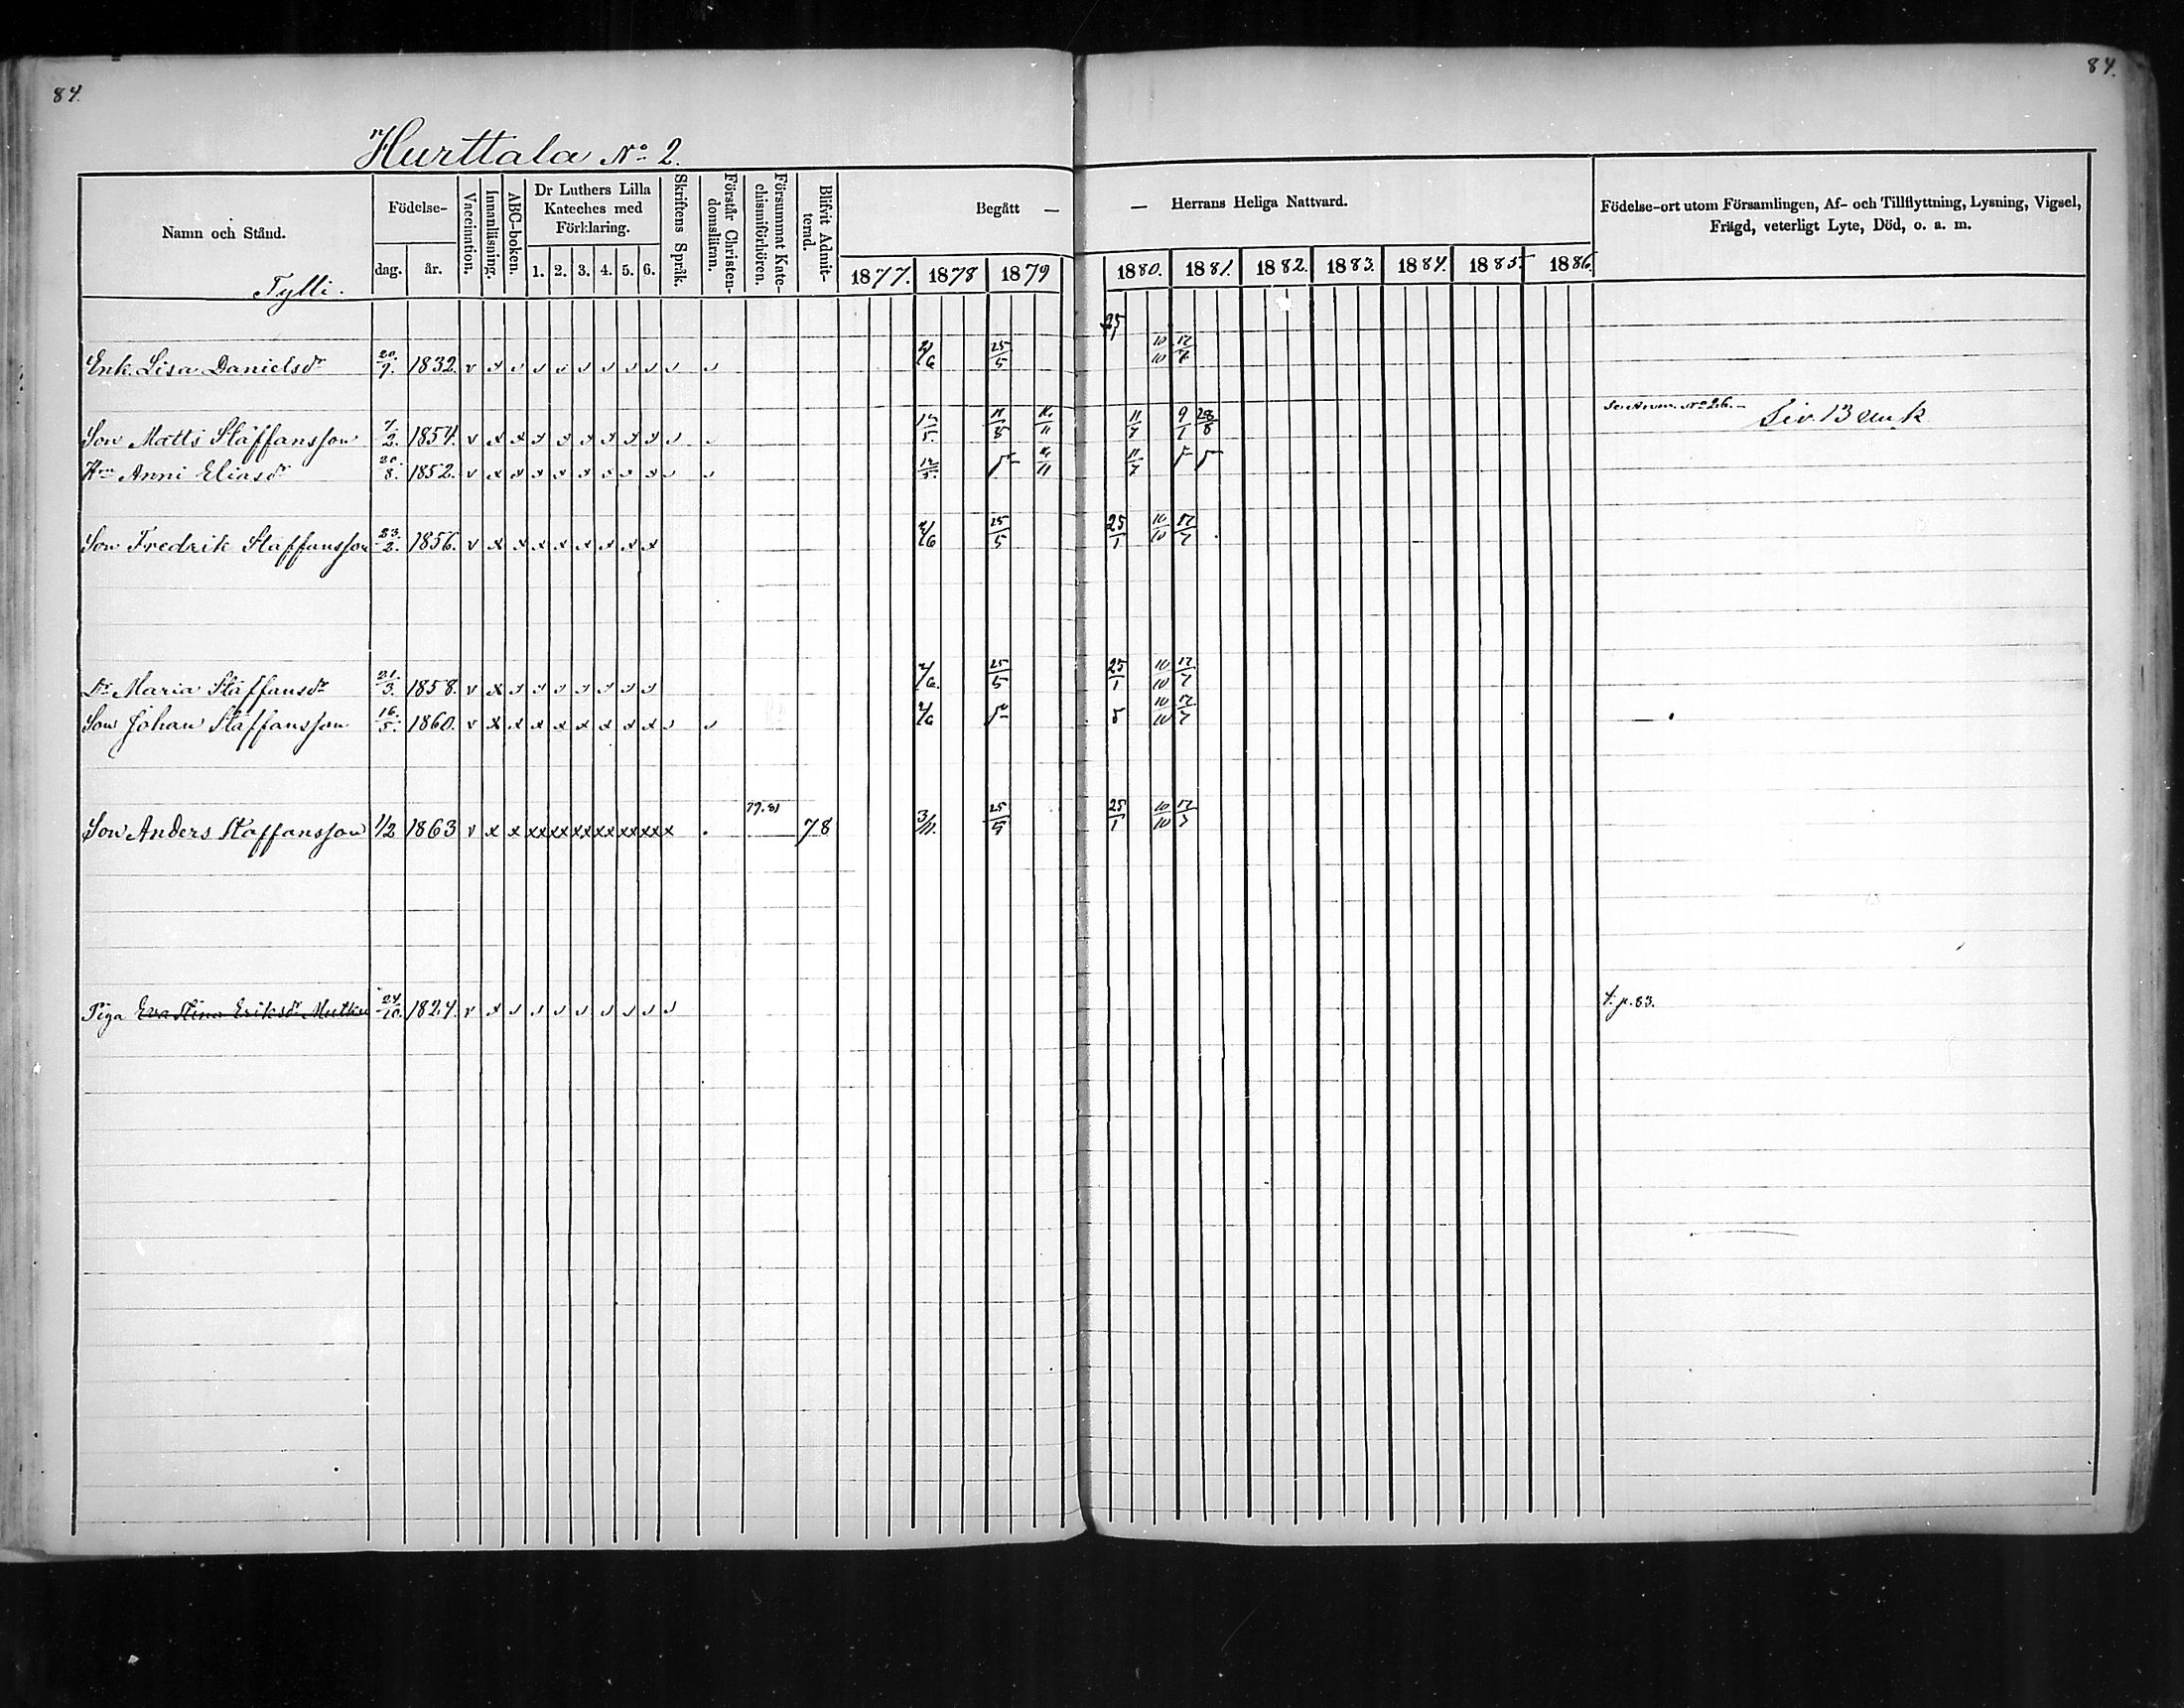 84.
84.
Hurttala No 2.
Namn och Stånd.
Födelse-
dag.
år.
Vaccination.
Innanläsning.
ABC-boken.
Dr Luthers Lilla Kateches med Förklaring.
1. 2. 3. 4. 5. 6.
Skriftens Språk.
Förstår Christen-domsläran.
Försummat Kate-chismiförhören.
Blifvit Admit-terad.
Begått — — Herrans Heliga Nattvard.
1877. 1878 1879 1880. 1881. 1882. 1883. 1884. 1885. 1886.
Födelse-ort utom Församlingen, Af- och Tillflyttning, Lysning, Vigsel, Frägd, veterligt Lyte, Död, o. a. m.
Tylli.
25/1
Enk. Lisa Danielsdr 20/7. 1832. v 2/6 25/5 10/10 17/7
Son Matts Staffansson 7/2. 1854. v x x 12/5. 11/5 11/7 9/1 28/8 No 26.
Hu Anni Eliasdr 20/8. 1852. v x 12/5. 11/7
Son Fredrik Staffansson 23/2. 1856. v x x x x x x x x 2/6 25/5 25/1 10/10 17/7
Dr Maria Staffansdr 21/3. 1858. v x 2/6. 25/5 25/1 10/10 17/7
Son Johan Staffansson 16/5. 1860. v x x x x x x x x 2/6 10/10 17/7
Son Anders Staffansson 1/2 1863 v x x xx xx xx xx xx xx x 79.81 78 3/11. 25/5 25/1 10/10 17/7
Piga Eva Stina Eriksdr 24/10. 1824. v x t. p. 83.